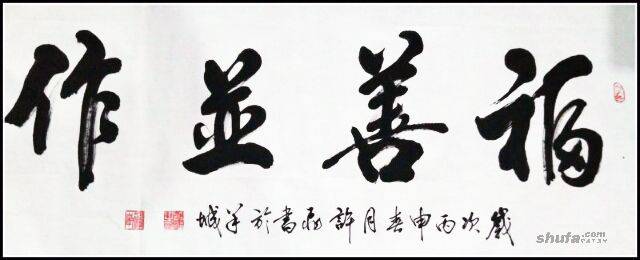 福善並作
歲次丙申春月許書於羊城
shufa.com